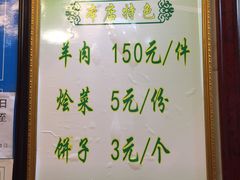 本店特色
羊肉 150元/件
烩菜 5元/份
饼子 3元/个
日
至